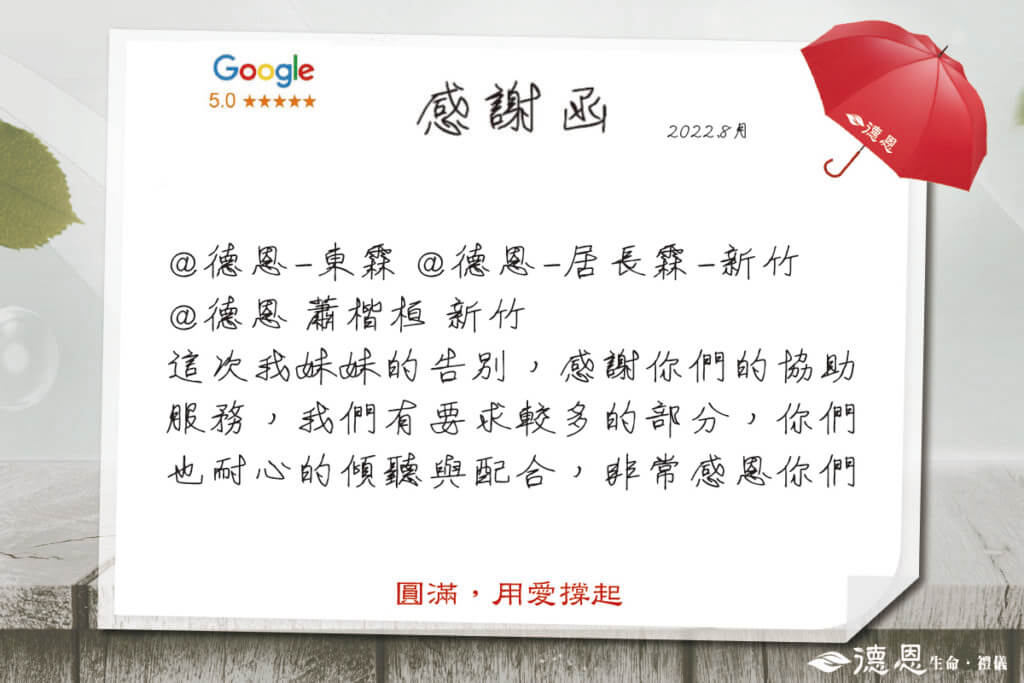 Google
5.0 ★★★★★
感謝函
2022.8月
德恩
@德恩-東霖 @德恩-居長霖-新竹
@德恩 蕭楷桓 新竹
這次我妹妹的告別，感謝你們的協助
服務，我們有要求較多的部分，你們
也耐心的傾聽與配合，非常感恩你們
圓滿，用愛撐起
德恩生命·禮儀